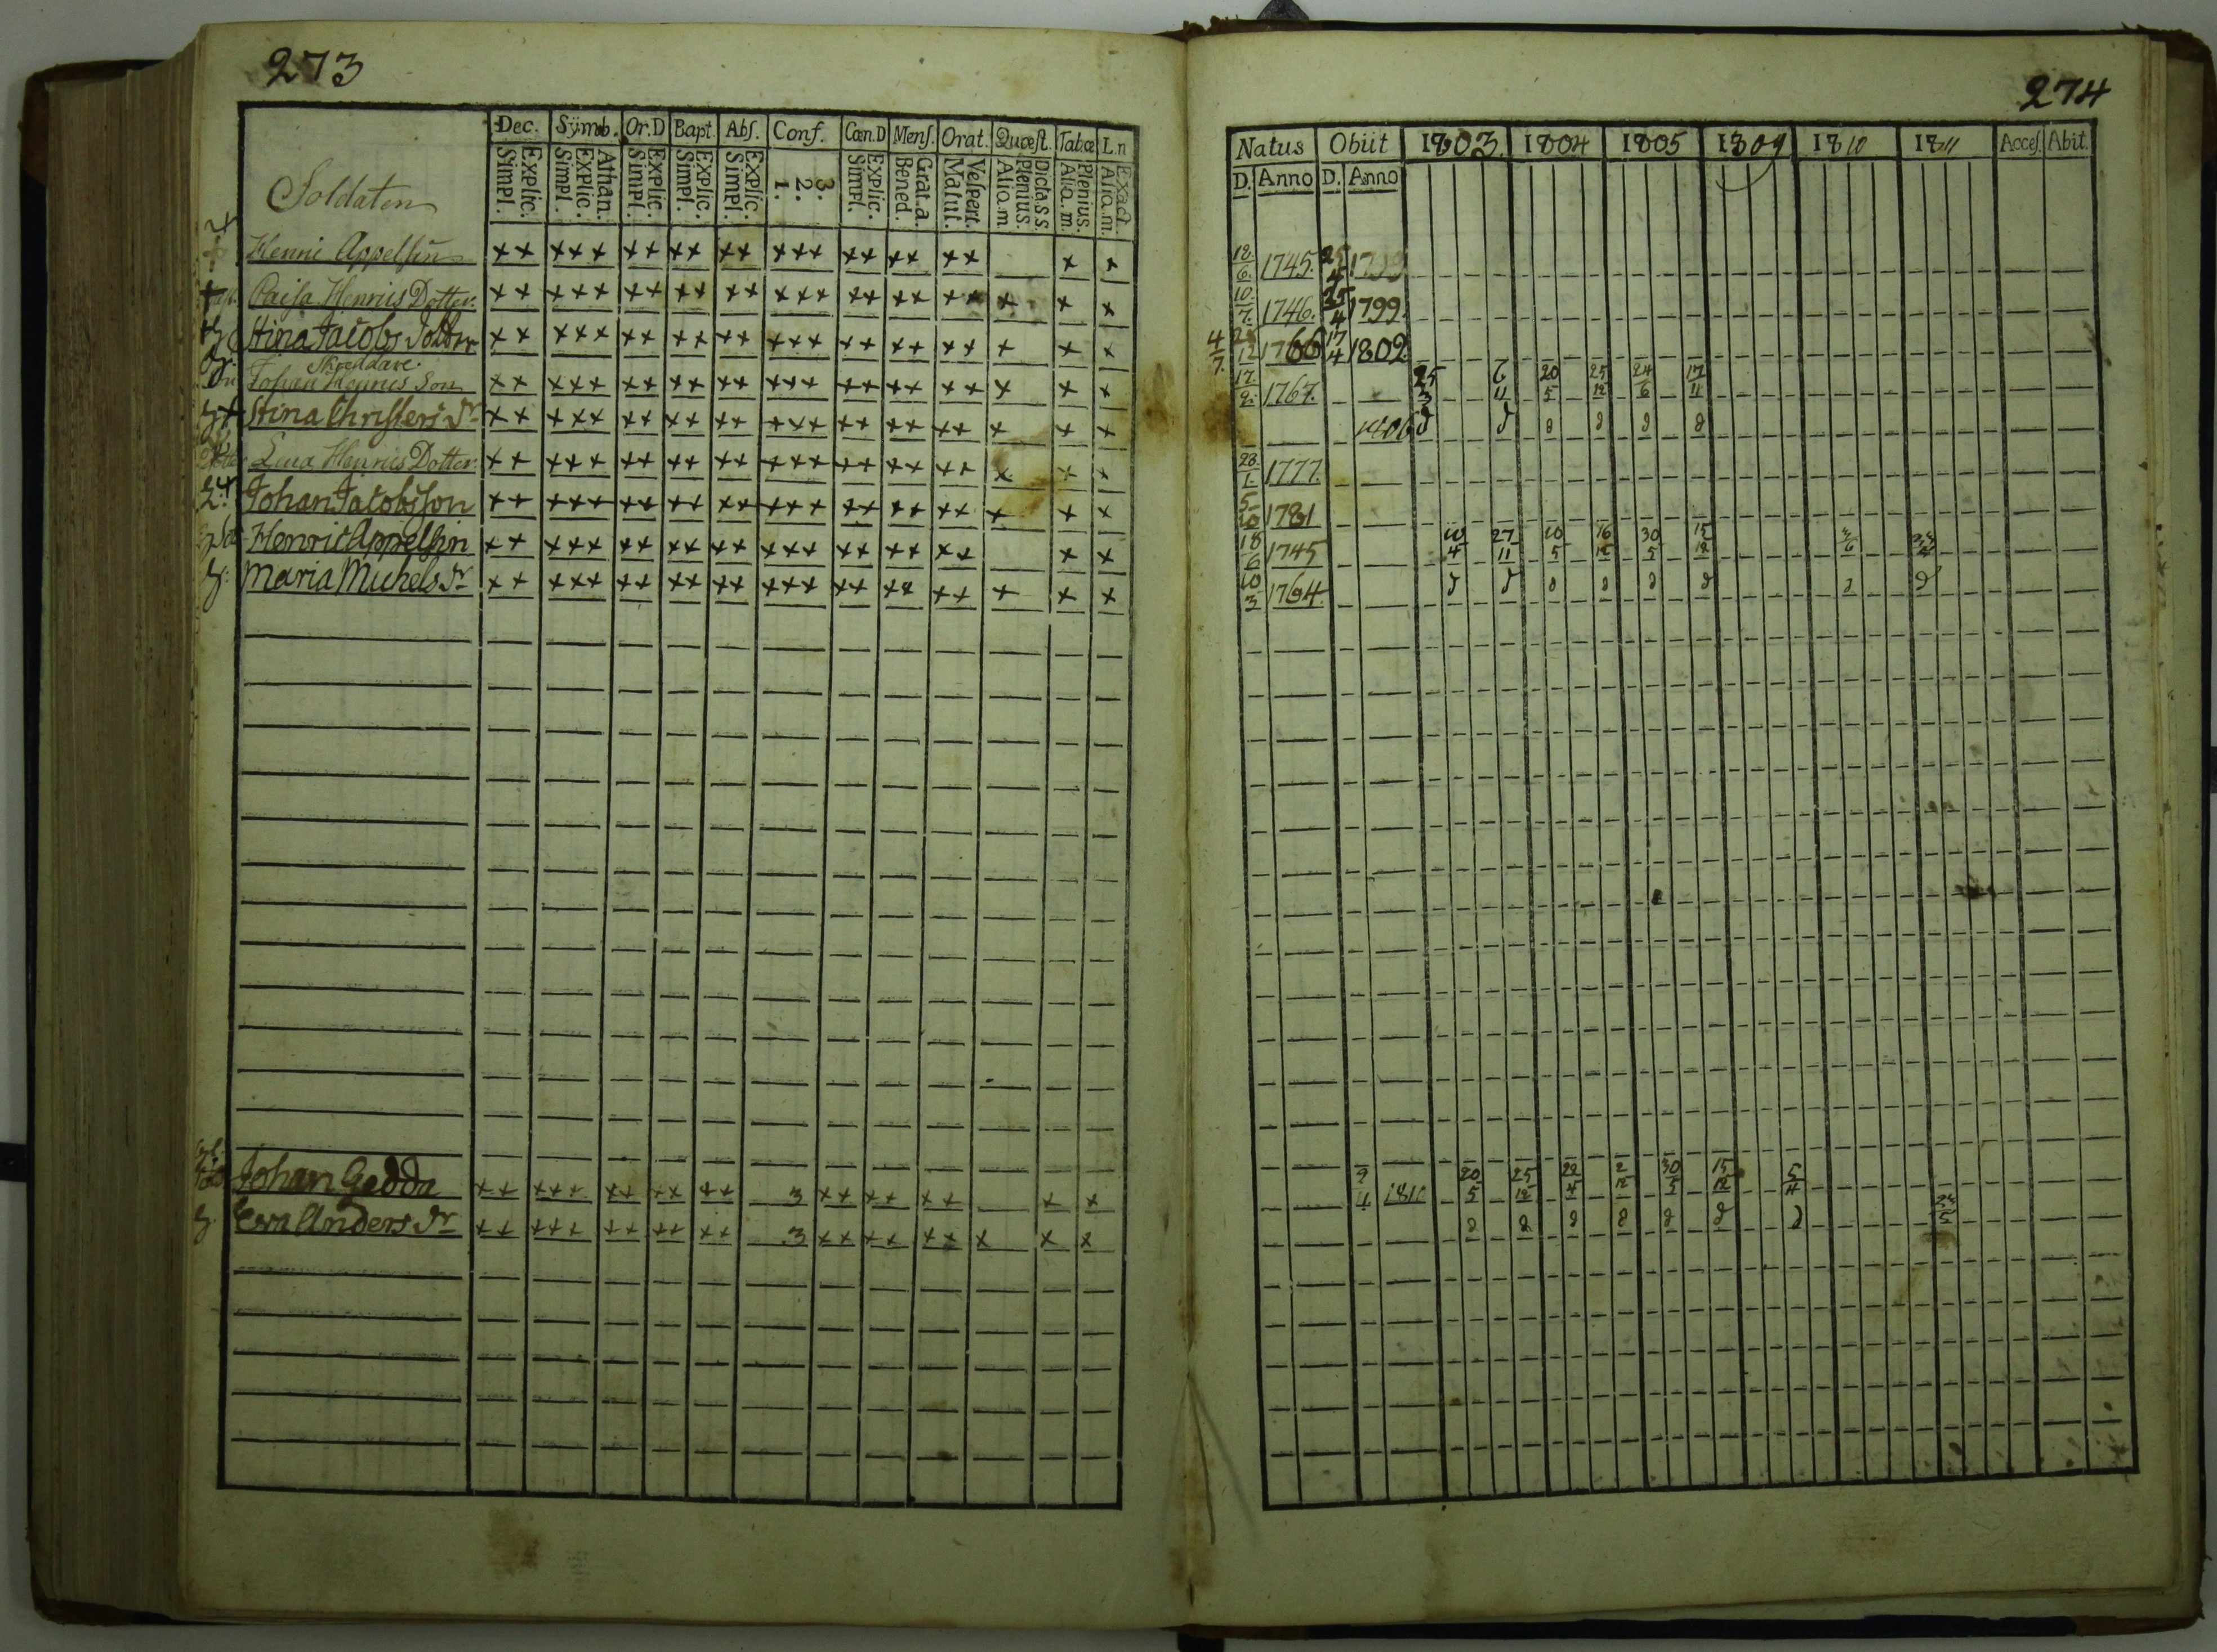 273
Dec. Sÿmb. Or.D Bapt. Abſ. Conf. Cœn.D Menſ. Orat. Quæſt. Tabæ L.n
Explic. Simpl. Athan. Explic. Simpl. Explic. Simpl. Explic. Simpl. Explic. Simpl. 3. 2. 1. Explic. Simpl. Grat.a. Bened. Veſpert. Matut. Dicta.s.s Plenius. Aliq.m Plenius. Aliq.m. Exact. Aliq.m.
Soldaten
Henric Appelsin ++ +++ ++ ++ ++ +++ ++ ++ ++ + +
Caisa Henrics Dotter ++ +++ ++ ++ ++ +++ ++ ++ ++ + + +
Stina Jacobs Dotter ++ +++ ++ ++ ++ +++ ++ ++ ++ + + +
Skreddare
Johan Henrics Son ++ +++ ++ ++ ++ +++ ++ ++ ++ + + +
Stina Christers Dr ++ +++ ++ ++ ++ +++ ++ ++ ++ + + +
Lena Henrics Dotter ++ +++ ++ ++ ++ +++ ++ ++ ++ + + +
Johan Jacobsson ++ +++ ++ ++ ++ +++ ++ ++ ++ + + +
Henric Appelsin ++ +++ ++ ++ ++ +++ ++ ++ ++ + +
h: Maria Michels Dr ++ +++ ++ ++ ++ +++ ++ ++ ++ + + +
Johan Gedda ++ +++ ++ ++ ++ 3 ++ ++ ++ + +
h. Eva Anders Dr ++ +++ ++ ++ ++ 3 ++ ++ ++ + + +
274
Natus Obiit 1803. 1804 1805 1809 1810 1811 Acceſ. Abit.
D. Anno D. Anno
18/6. 1745. 25/4 1799
10/7. 1746. 25/4 1799.
4/7. 1766 17/4 1802
17/9. 1767. 25/3 6/11 20/5 25/12 24/6 17/11
1806
28/1. 1777.
5/10 1781
18/6 1745 10/4 27/11 10/5 16/12 30/5 15/12
10/3 1764.
9/11 1810 20/5 25/12 22/4 2/12 30/5 15/12 5/11